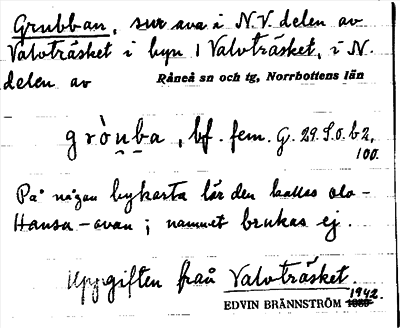 Grubban, sur ava i N.V. delen av
Valvträsket i byn Valvträsket, i N.
delen av Råneå sn och tg, Norrbottens län
gròn̯ba, bf. fem. G. 29. S.o. b2,
100.
På någon bykarta lär den kallas Olo-
Hansa-avan; namnet brukas ej.
Uppgiften från Valvträsket.
1942.
EDVIN BRÄNNSTRÖM